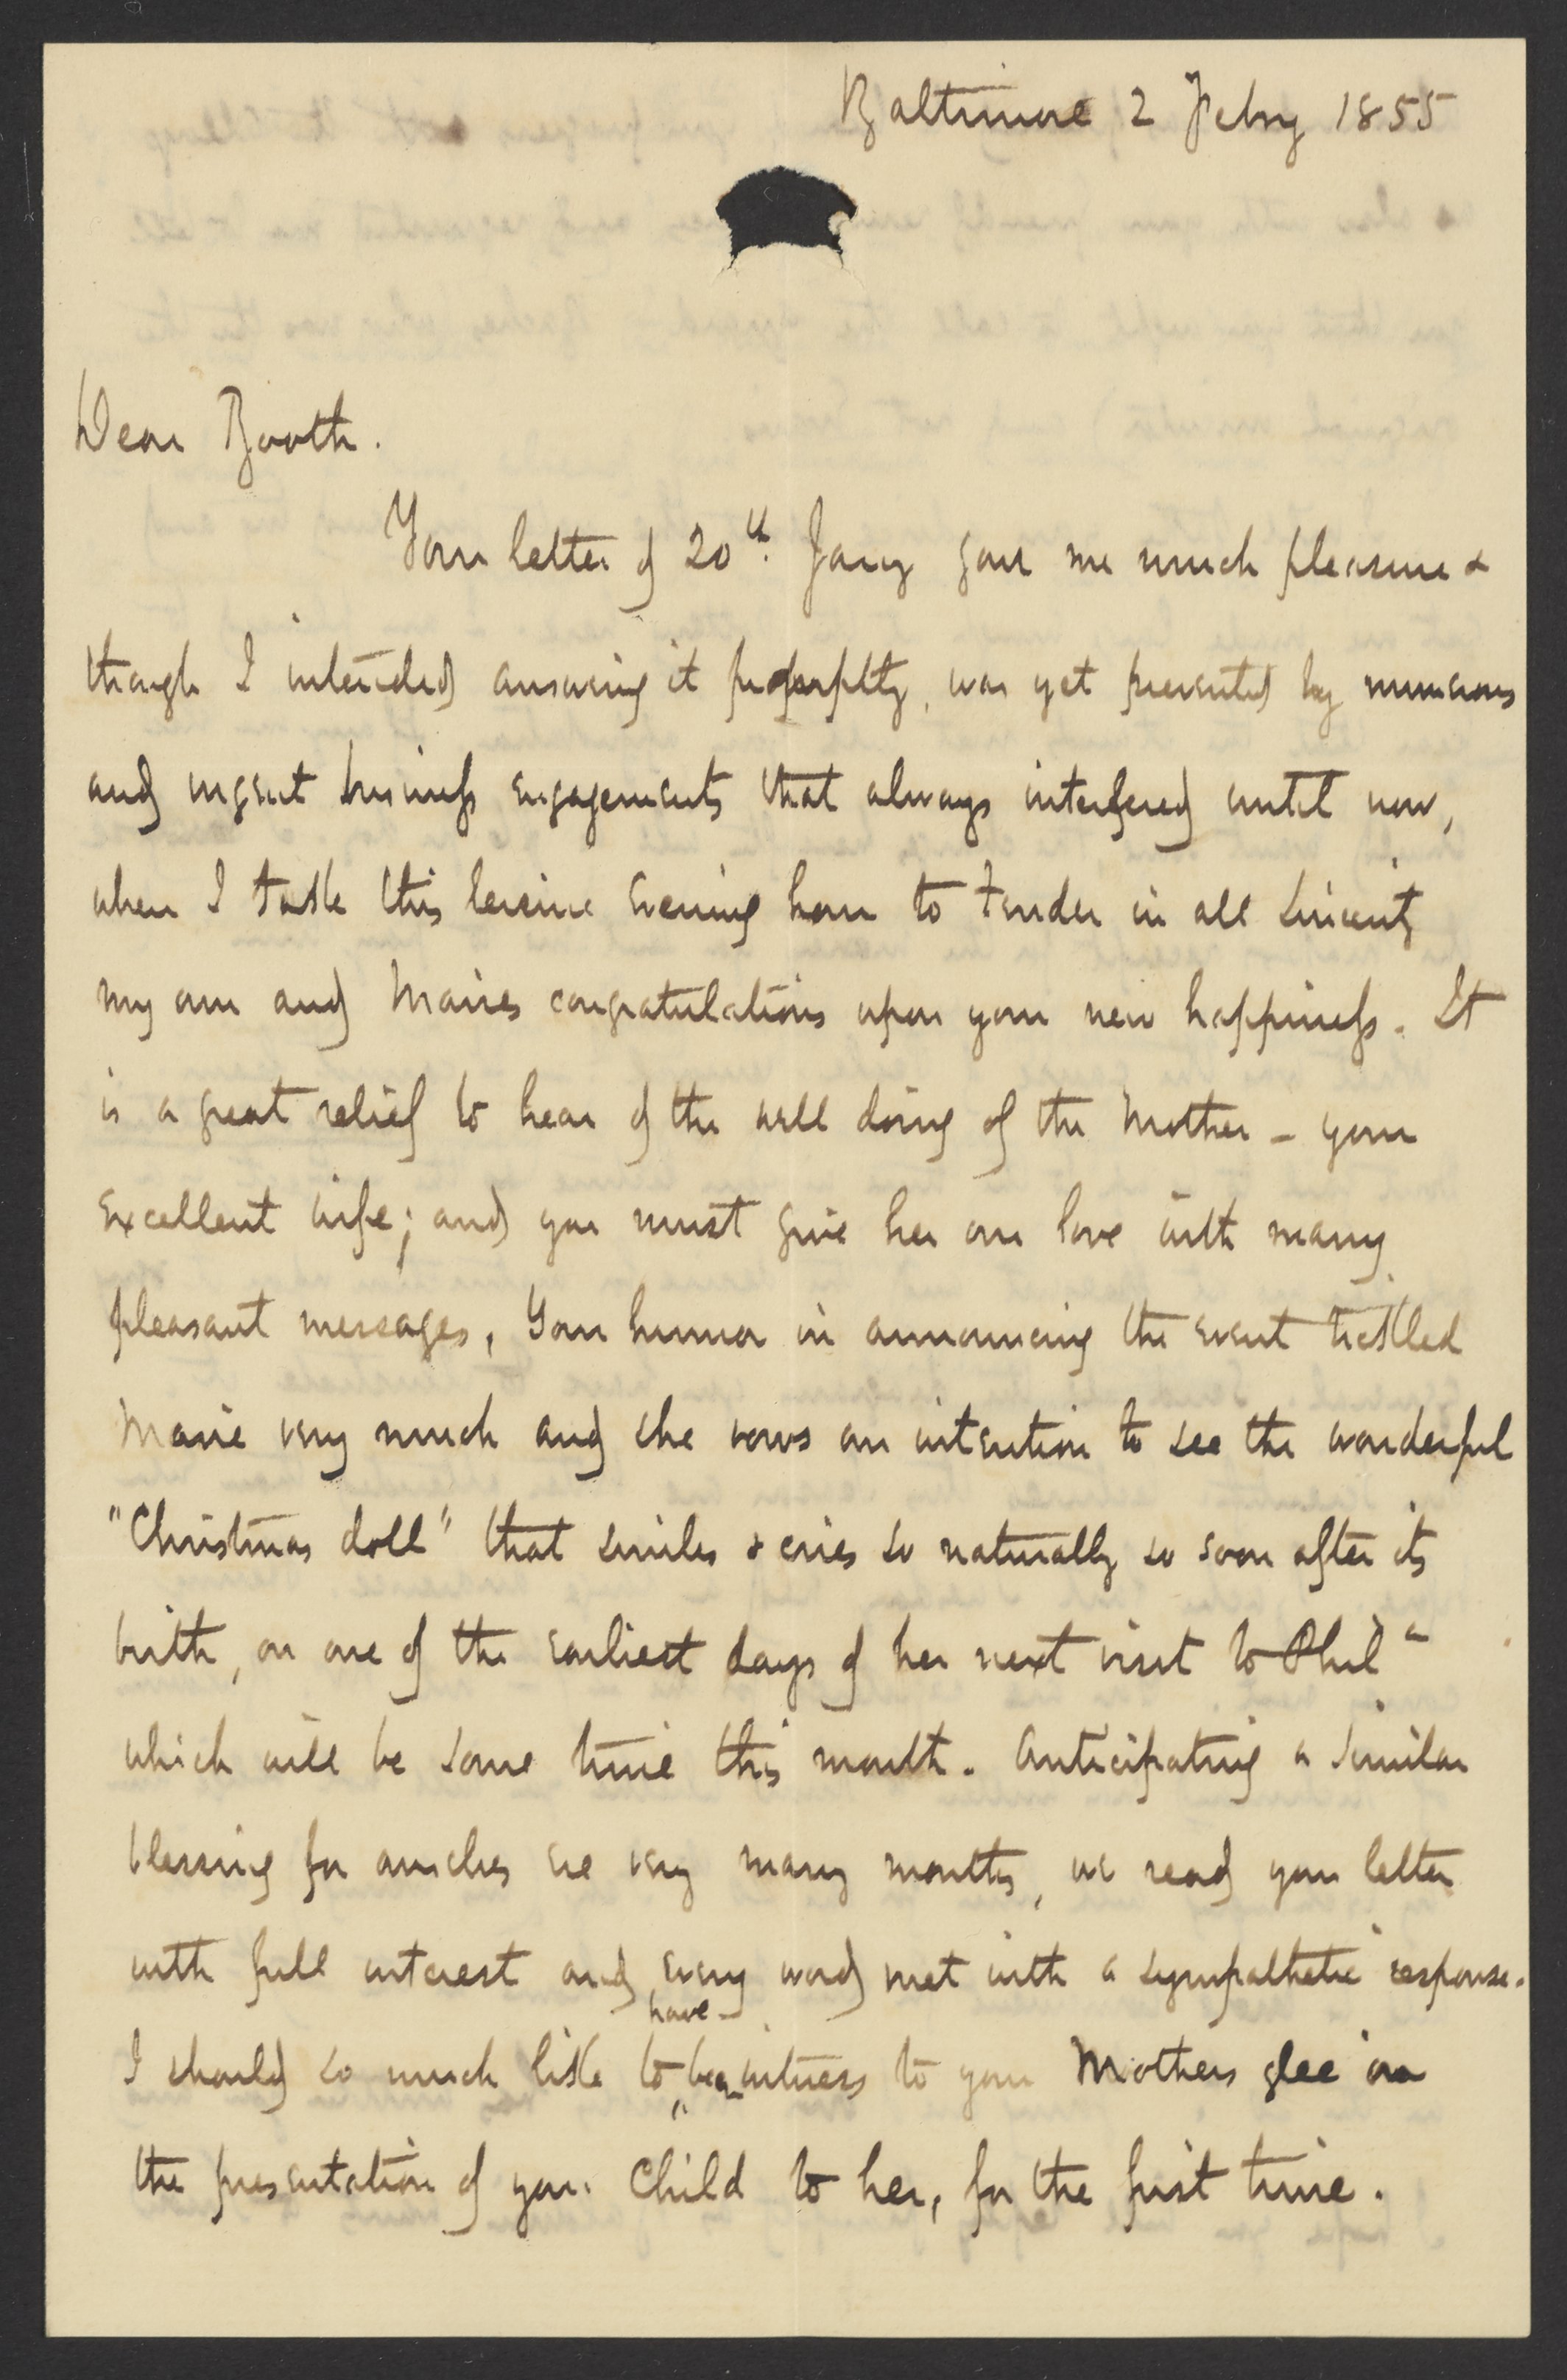 Baltimore 2 Feby 1855
Dear Booth.
Your letter of 20th. Jany gave me much pleasure &
though I intended answering it promptly, was yet prevented by numerous
and urgent business engagements that always interfered until now,
when I take this leisure Evening hour to tender in all sincerity
my own and Maries congratulations upon your new happiness. It
is a great relief to hear of the well doing of the Mother – your
Excellent wife; and you must give her our love with many
pleasant messages, Your humor in announcing the event tickled
Marie very much and she vows an intention to see the wonderful
"Christmas doll" that smiles & cries so naturally so soon after its
birth, on one of the earliest days of her next visit to Phila
which will be some time this month. Anticipating a similar
blessing for ourselves ere very many months, we read your letter
with full interest and every word met with a sympathetic response.
I should so much like to have been witness to your Mothers glee on
the presentation of your Child to her, for the first time.